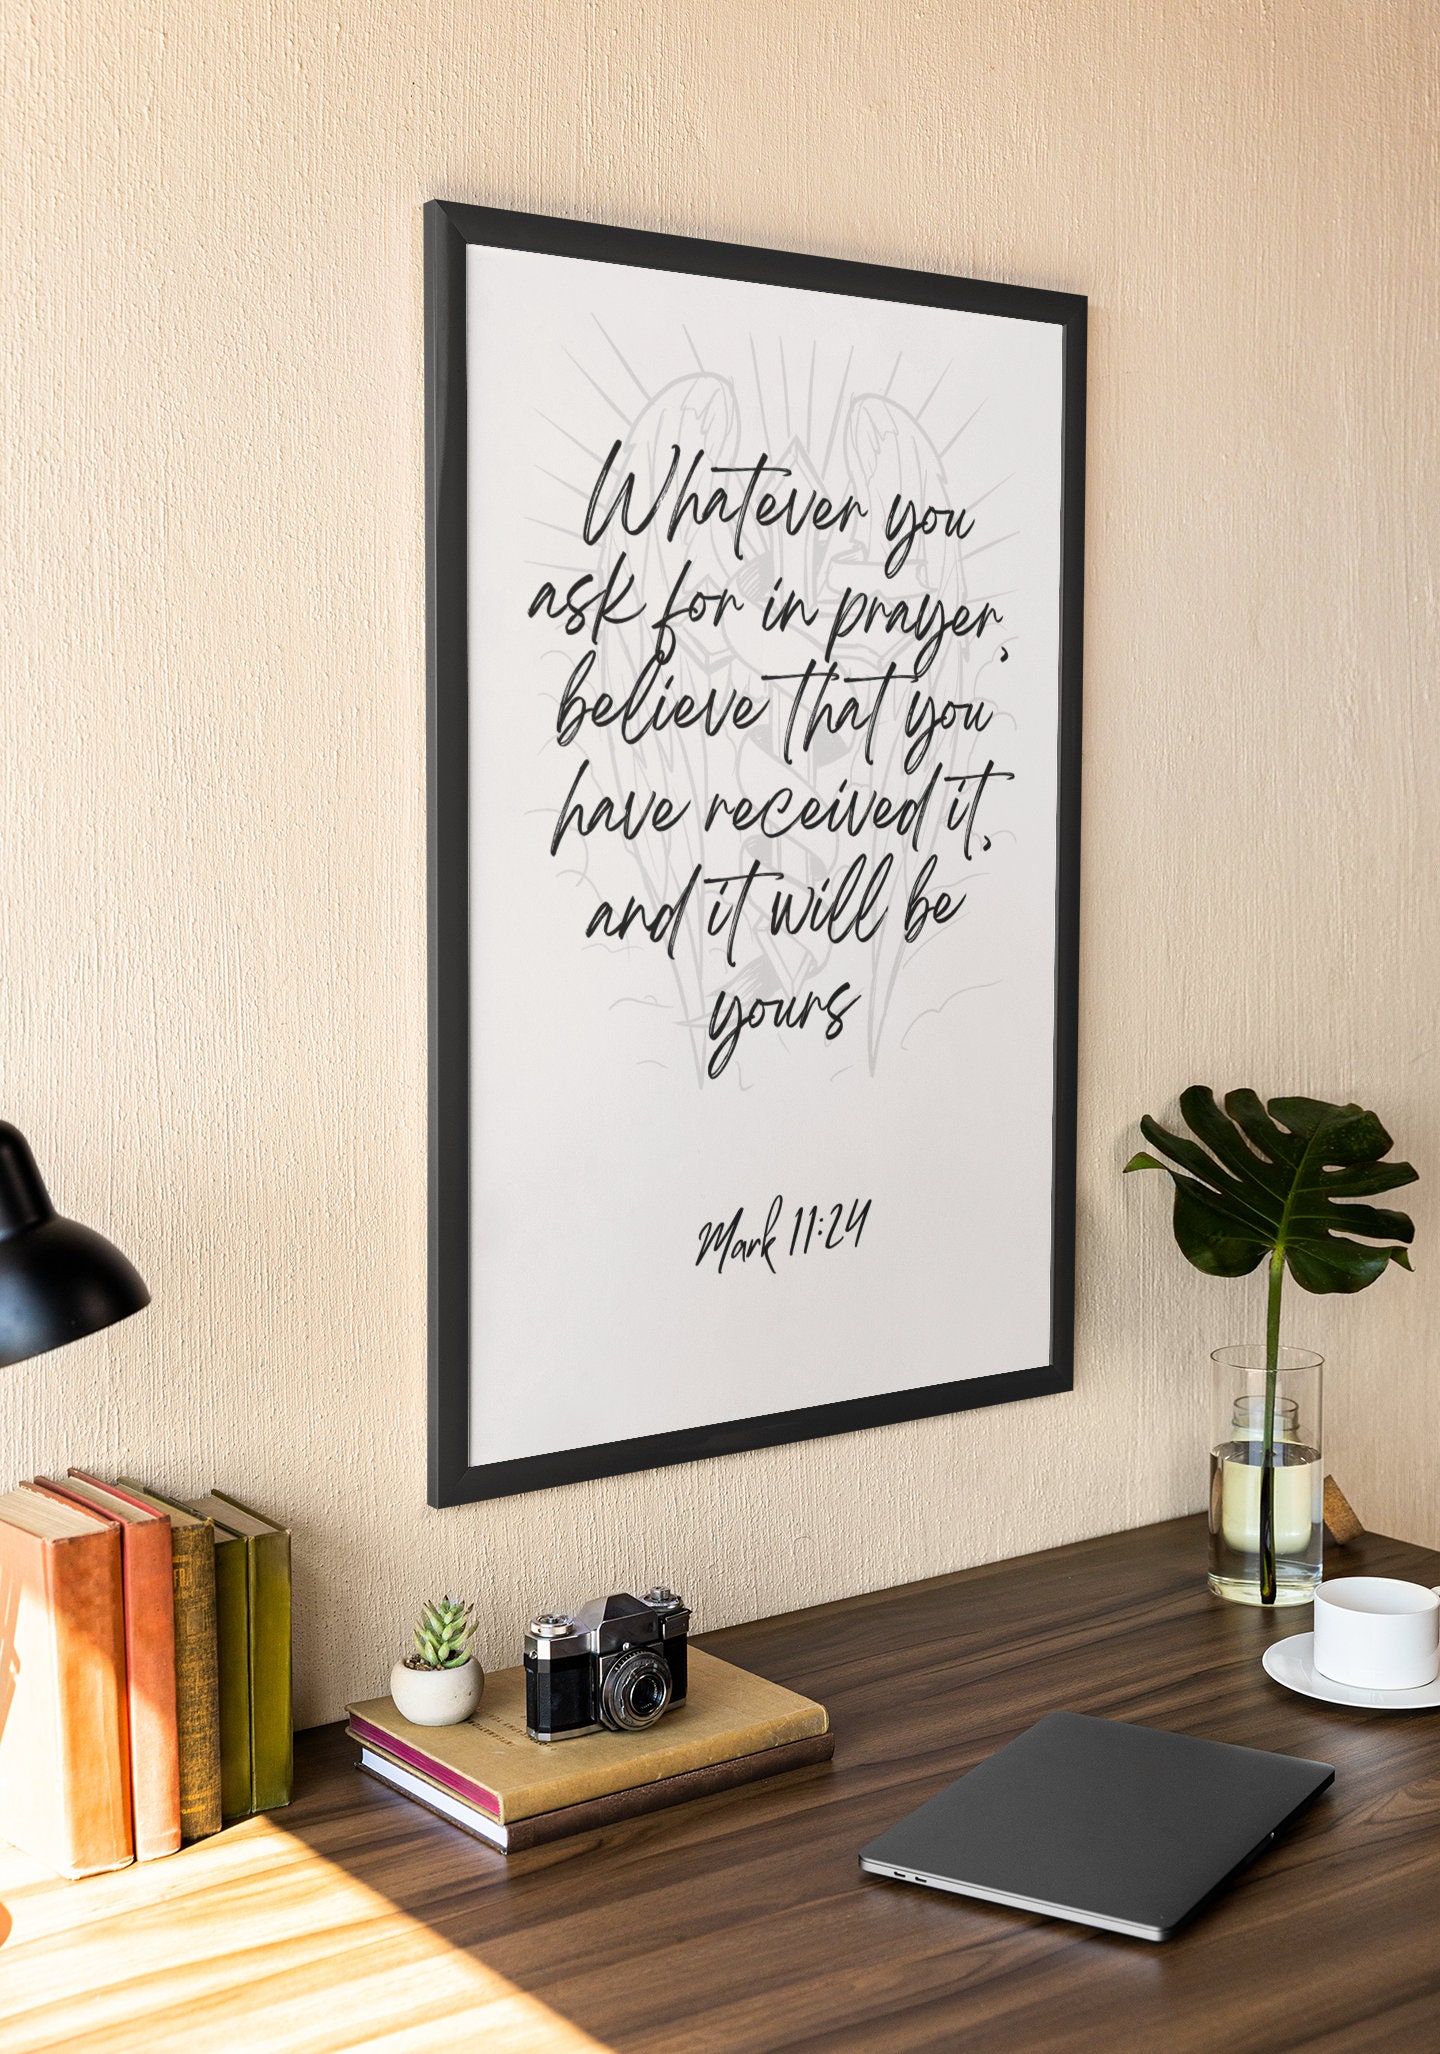 Whatever you
ask for in prayer,
believe that you
have received it,
and it will be
yours
Mark 11:24